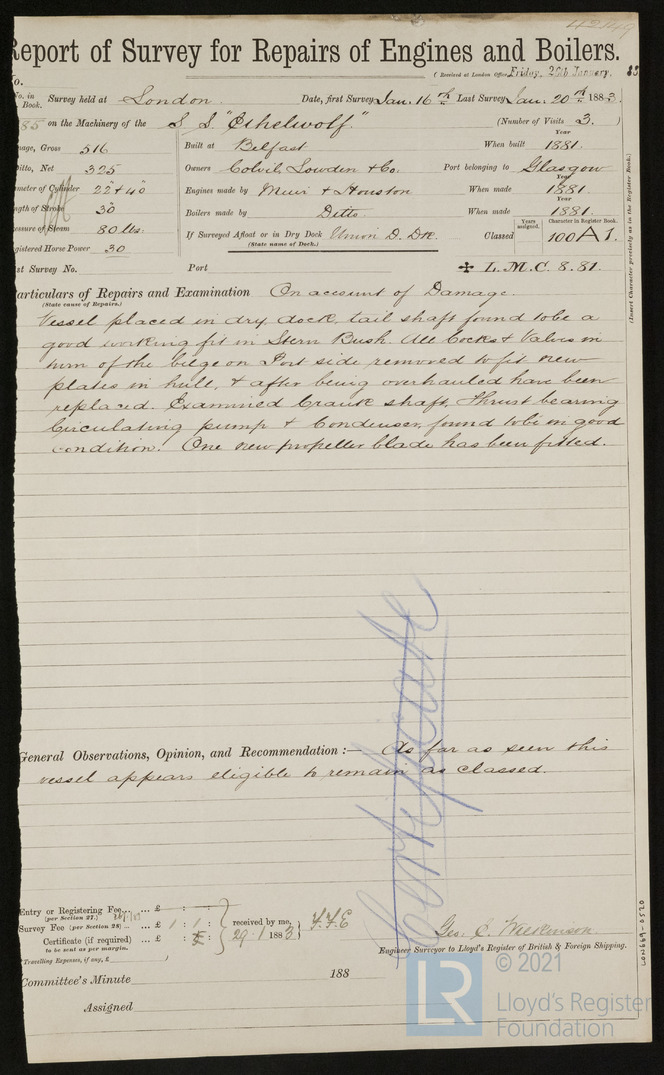 42849
Report of Survey for Repairs of Engines and Boilers.
No. (Received at London Office, Friday, 26th January, 83
No. in Book. Survey held at London. Date, first Survey Jan. 16th Last Survey Jan. 20th 1883.
85 on the Machinery of the S.S. "Ethelwolf." (Number of Visits 3.)
nage, Gross 516 Built at Belfast When built Year 1881.
Ditto, Net 325 Owners Colvil, Lowden & Co. Port belonging to Glasgow
meter of Cylinder 22 + 40 Engines made by Muir & Houston When made Year 1881.
ngth of Stroke 30 Boilers made by Ditto When made Year 1881.
essure of Steam 80 lbs. If Surveyed Afloat or in Dry Dock Union D. Dk. Classed Years assigned. Character in Register Book. 100 A 1.
(State name of Dock.)
gistered Horse Power 30
st Survey No. Port ✣ L.M.C. 8.81.
(Insert Character precisely as in the Register Book.)
articulars of Repairs and Examination On account of Damage.
(State cause of Repairs.)
Vessel placed in dry dock, tail shaft found to be a
good working fit in Stern Bush. All Cocks & Valves in
turn of the bilge on Port side removed to fit new
plates in hull, & after being overhauled have been
replaced. Examined Crank shaft, Thrust bearing
Circulating pump & Condenser, found to be in good
condition. One new propeller blade has been fitted.
Certificate
General Observations, Opinion, and Recommendation :— As far as seen this
vessel appears eligible to remain as classed.
Entry or Registering Fee... ... £ : :
(per Section 27.)
Survey Fee (per Section 28) ... £ 1 : 1 : received by me, F.F.E
Certificate (if required) ... £ : 5 : 29.1 1883
to be sent as per margin.
(Travelling Expenses, if any, £ )
Geo. C. Wilkinson.
Engineer Surveyor to Lloyd's Register of British & Foreign Shipping.
Committee's Minute 188
Assigned
LON669-0520
LR
© 2021
Lloyd's Register
Foundation